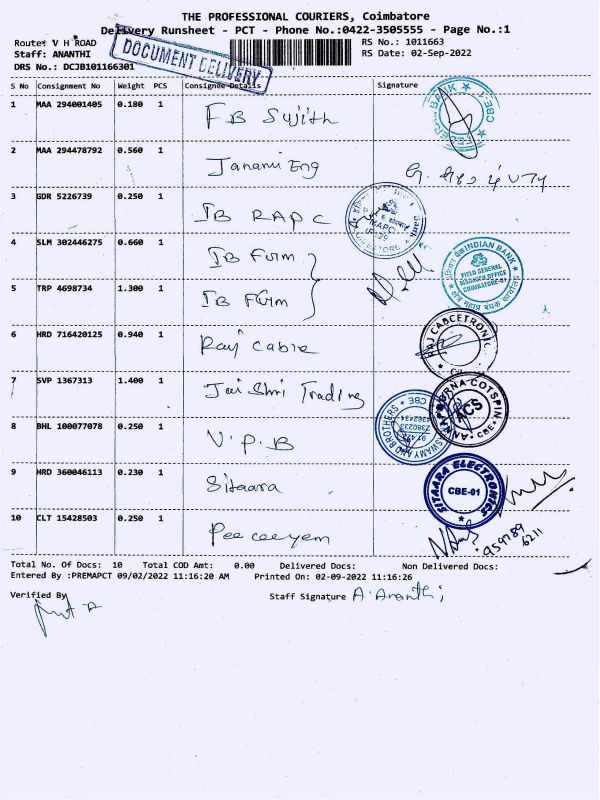 THE PROFESSIONAL COURIERS, Coimbatore
Delivery Runsheet - PCT - Phone No.:0422-3505555 - Page No.:1
Route: V H ROAD
RS No.: 1011663
Staff: ANANTHI
RS Date: 02-Sep-2022
DRS No.: DCJB101166301
DOCUMENT DELIVERY
S No Consignment No Weight PCS Consignee Details Signature
1 MAA 294001405 0.180 1 FB Sujith
2 MAA 294478792 0.560 1 Janani Eng
3 GDR 5226739 0.250 1 IB RAPC
4 SLM 302446275 0.660 1 IB Fum
INDIAN BANK
FIELD GENERAL
MANAGER OFFICE
COIMBATORE-01
5 TRP 4698734 1.300 1 IB Fum
6 HRD 716420125 0.940 1 Raj Cable
RAJ CABCETRONIC
7 SVP 1367313 1.400 1 Jai Shri Trading
PRNA COTSPIN
ACS
8 BHL 100077078 0.250 1 V.P.B
SWAMY AND BROTHERS
CBE
9 HRD 360046113 0.230 1 Sitaara
SITAARA ELECTRONICS
CBE-01
10 CLT 15428503 0.250 1 Pee ceeyem
959789
6211
Total No. Of Docs: 10 Total COD Amt: 0.00 Delivered Docs: Non Delivered Docs:
Entered By :PREMAPCT 09/02/2022 11:16:20 AM Printed On: 02-09-2022 11:16:26
Verified By
Staff Signature A. Ananthi